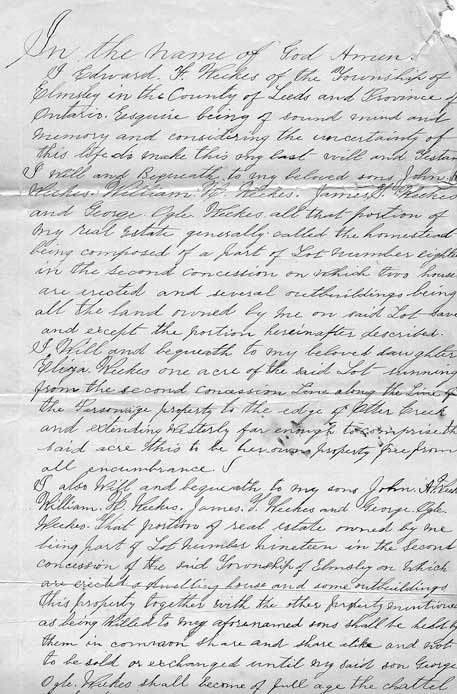 In the name of God Amen.
I Edward. F. Weekes of the Township of
Elmsley in the County of Leeds and Province of
Ontario. Esquire being of sound mind and
memory and considering the uncertainty of
this life do make this my last will and
I Will and Bequeath to my beloved sons John.
Weekes. William. H. Weekes. James. Weekes
and George. Ogle. Weekes all that portion of
my real Estate generally called the homestead
being composed of a part of Lot number
in the second concession on which two
are erected and several outbuildings being
all the land owned by me on said Lot save
and except the portion hereinafter described.
I Will and bequeath to my beloved daughter
Eliza. Weekes one acre of the said Lot running
from the second concession Line along the Line of
the Parsonage property to the edge of Otter Creek
and extending Westerly far enough to comprise the
said acre this to be her own property free from
all encumbrance.
I also Will and bequeath to my sons John.
William. H. Weekes. James. Weekes and George. Ogle.
Weekes. That portion of real estate owned by me
being part of Lot Number Nineteen in the Second
concession of the said Township of Elmsley on which
are erected a dwelling house and some outbuildings
this property together with the other property
as being Willed to my aforenamed sons shall be held by
them in common share and share alike and not
to be sold or exchanged until my said son George
Ogle. Weekes shall become of full age the chattel